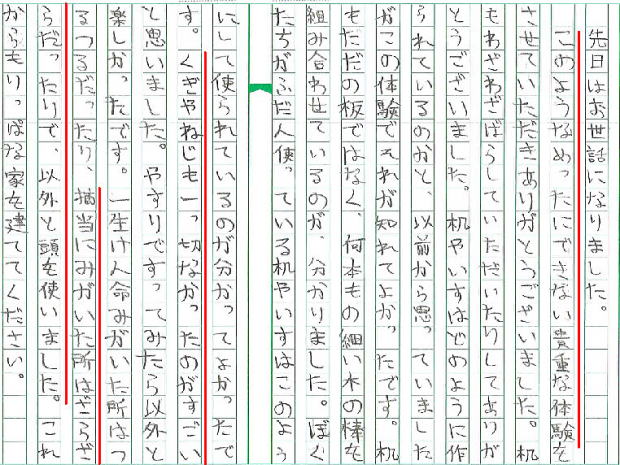 先日はお世話になりました。
このようなめったにできない貴重な体験を
させていただきありがとうございました。机
もわざわざばらしていただいたりしてありが
とうございました。机やいすはどのように作
られているのかと、以前から思っていました
がこの体験でそれが知れてよかったです。机
もただの板ではなく、何本もの細い木の棒を
組み合わせているのが、分かりました。ぼく
たちがふだん使っている机やいすはこのよう
にして使られているのが分かってよかったで
す。くぎやねじも一切なかったのがすごい
と思いました。やすりですってみたら以外と
楽しかったです。一生けん命みがいた所はつ
るつるだったり、適当にみがいた所はざらざ
らだったりで、以外と頭を使いました。これ
からもりっぱな家を建ててください。